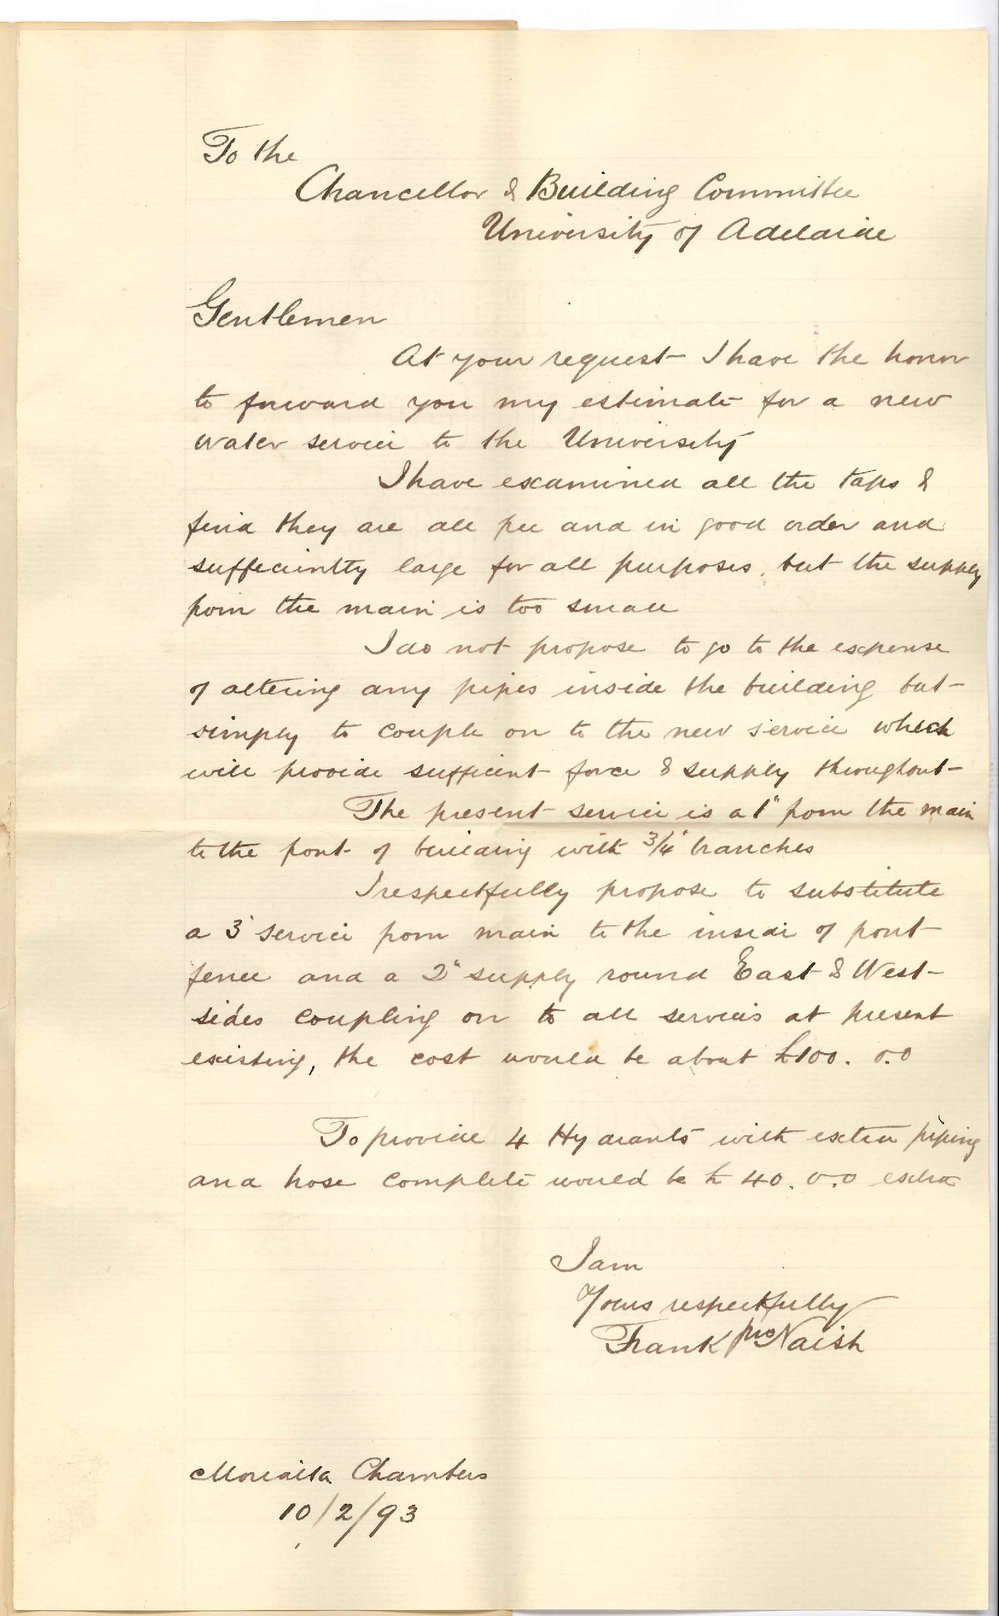 To the
Chancellor & Building Committee
University of Adelaide
Gentlemen
At your request I have the honor
to forward you my estimate for a new
water service to the University
I have examined all the taps &
find they are all free and in good order and
sufficiently large for all purposes, but the supply
from the main is too small
I do not propose to go to the expense
of altering any pipes inside the building but
simply to couple on to the new service which
will provide sufficient force & supply throughout
The present service is a 1" from the main
to the front of building with 3/4" branches
I respectfully propose to substitute
a 3" service from main to the inside of front
fence and a 2" supply round East & West
sides coupling on to all services at present
existing, the cost would be about £100. 0.0
To provide 4 Hydrants with extra piping
and hose complete would be £ 40. 0.0 extra
I am
Yours respectfully
Frank Naish
Morialta Chambers
10/2/93